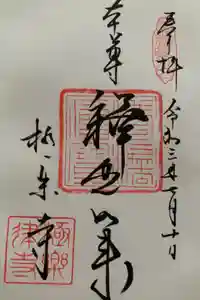 奉拝
令和三年一月十日
本尊
釋迦如来
極楽寺
極樂律寺